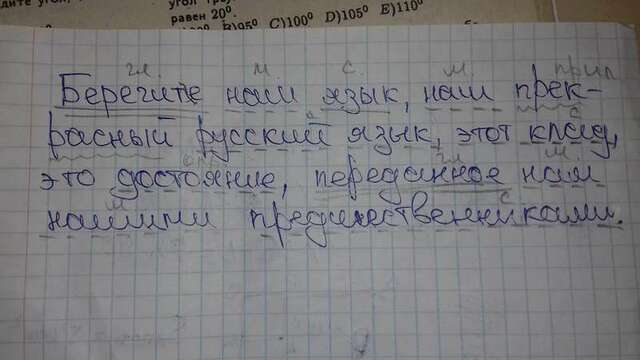 равен 20⁰.
B)95⁰ C)100⁰ D)105⁰ E)110⁰
гл. м. с. м. прил
Берегите наш язык, наш прек-
расный русский язык, этот клад,
с
это достояние, переданное нам
гл. м.
нашими предшественниками.
м с